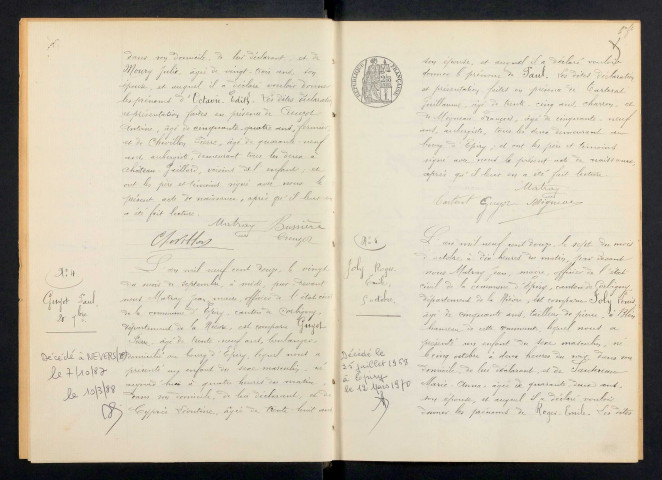 dans son domicile, de lui déclarant, et de
Moury Julie, âgée de vingt trois ans, son
épouse, et auquel il a déclaré vouloir donner
les prénoms d'Octavie Edith. Les dites déclaration
et présentation faites en présence de
Antoine, âgé de cinquante quatre ans, fermier,
et de Chevillon Pierre, âgé de quarante neuf
ans aubergiste, demeurant tous les deux à
château Gaillard, voisins de l'enfant, et
ont les père et témoins signé avec nous le
présent acte de naissance, après qu'il leur en
a été fait lecture.
Matray Bussière
Chevillon
N: 4
Guyot Paul
20 7bre
Décédé à NEVERS
le 7/10/87
le 10/3/88
L'an mil neuf cent douze, le vingt
du mois de septembre, à midi, par devant
nous Matray Jean, maire, officier de l'état civil
de la commune d'Epiry, canton de Corbigny,
département de la Nièvre, est comparu Guyot
âgé de trente neuf ans, boulanger,
domicilié au bourg d'Epiry, lequel nous a
présenté un enfant du sexe masculin, né
à quatre heures du matin,
dans son domicile, de lui déclarant, et de
Léontine, âgée de trente huit ans
son épouse, et auquel il a déclaré vouloir
donner le prénom de Paul. Les dites déclaration
et présentation faites en présence de
Guillaume, âgé de trente cinq ans, charron, et
de Mignon François, âgé de cinquante neuf
ans, aubergiste, tous les deux demeurant au
bourg d'Epiry, et ont les père et témoins
signé avec nous le présent acte de naissance,
après qu'il leur en a été fait lecture.
Matray
Guyot Mignon
RÉPUBLIQUE FRANÇAISE
N: 5
Joly Roger
Emile
5 octobre
Décédé le
25 juillet 1968
à Epiry
le 12 mars 1970
L'an mil neuf cent douze, le sept du mois
d'octobre, à dix heures du matin, par devant
nous Matray Jean, maire, officier de l'état
civil de la commune d'Epiry, canton de Corbigny,
département de la Nièvre, est comparu Joly
âgé de cinquante ans, tailleur de pierre,
hameau de cette commune, lequel nous a
présenté un enfant du sexe masculin, né
le cinq octobre à deux heures du soir, dans son
domicile de lui déclarant, et de
Marie Anne, âgée de quarante deux ans,
son épouse, et auquel il a déclaré vouloir
donner les prénoms de Roger Emile. Les dites